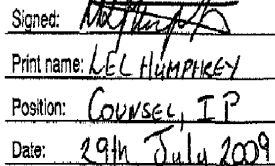 Signed:
Print name: LEL HUMPHREY
Position: COUNSEL, IP
Date: 29th July 2009